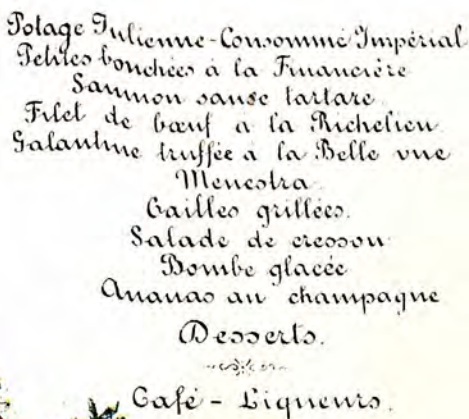 Potage Julienne-Consommé Impérial
Petites bouchées à la Financière
Saumon sause tartare
Filet de bœuf à la Richelieu
Galantine truffée à la Belle vue
Menestra
Cailles grillées.
Salade de cresson
Bombe glacée
Ananas au champagne
Desserts.
Café - Liqueurs.